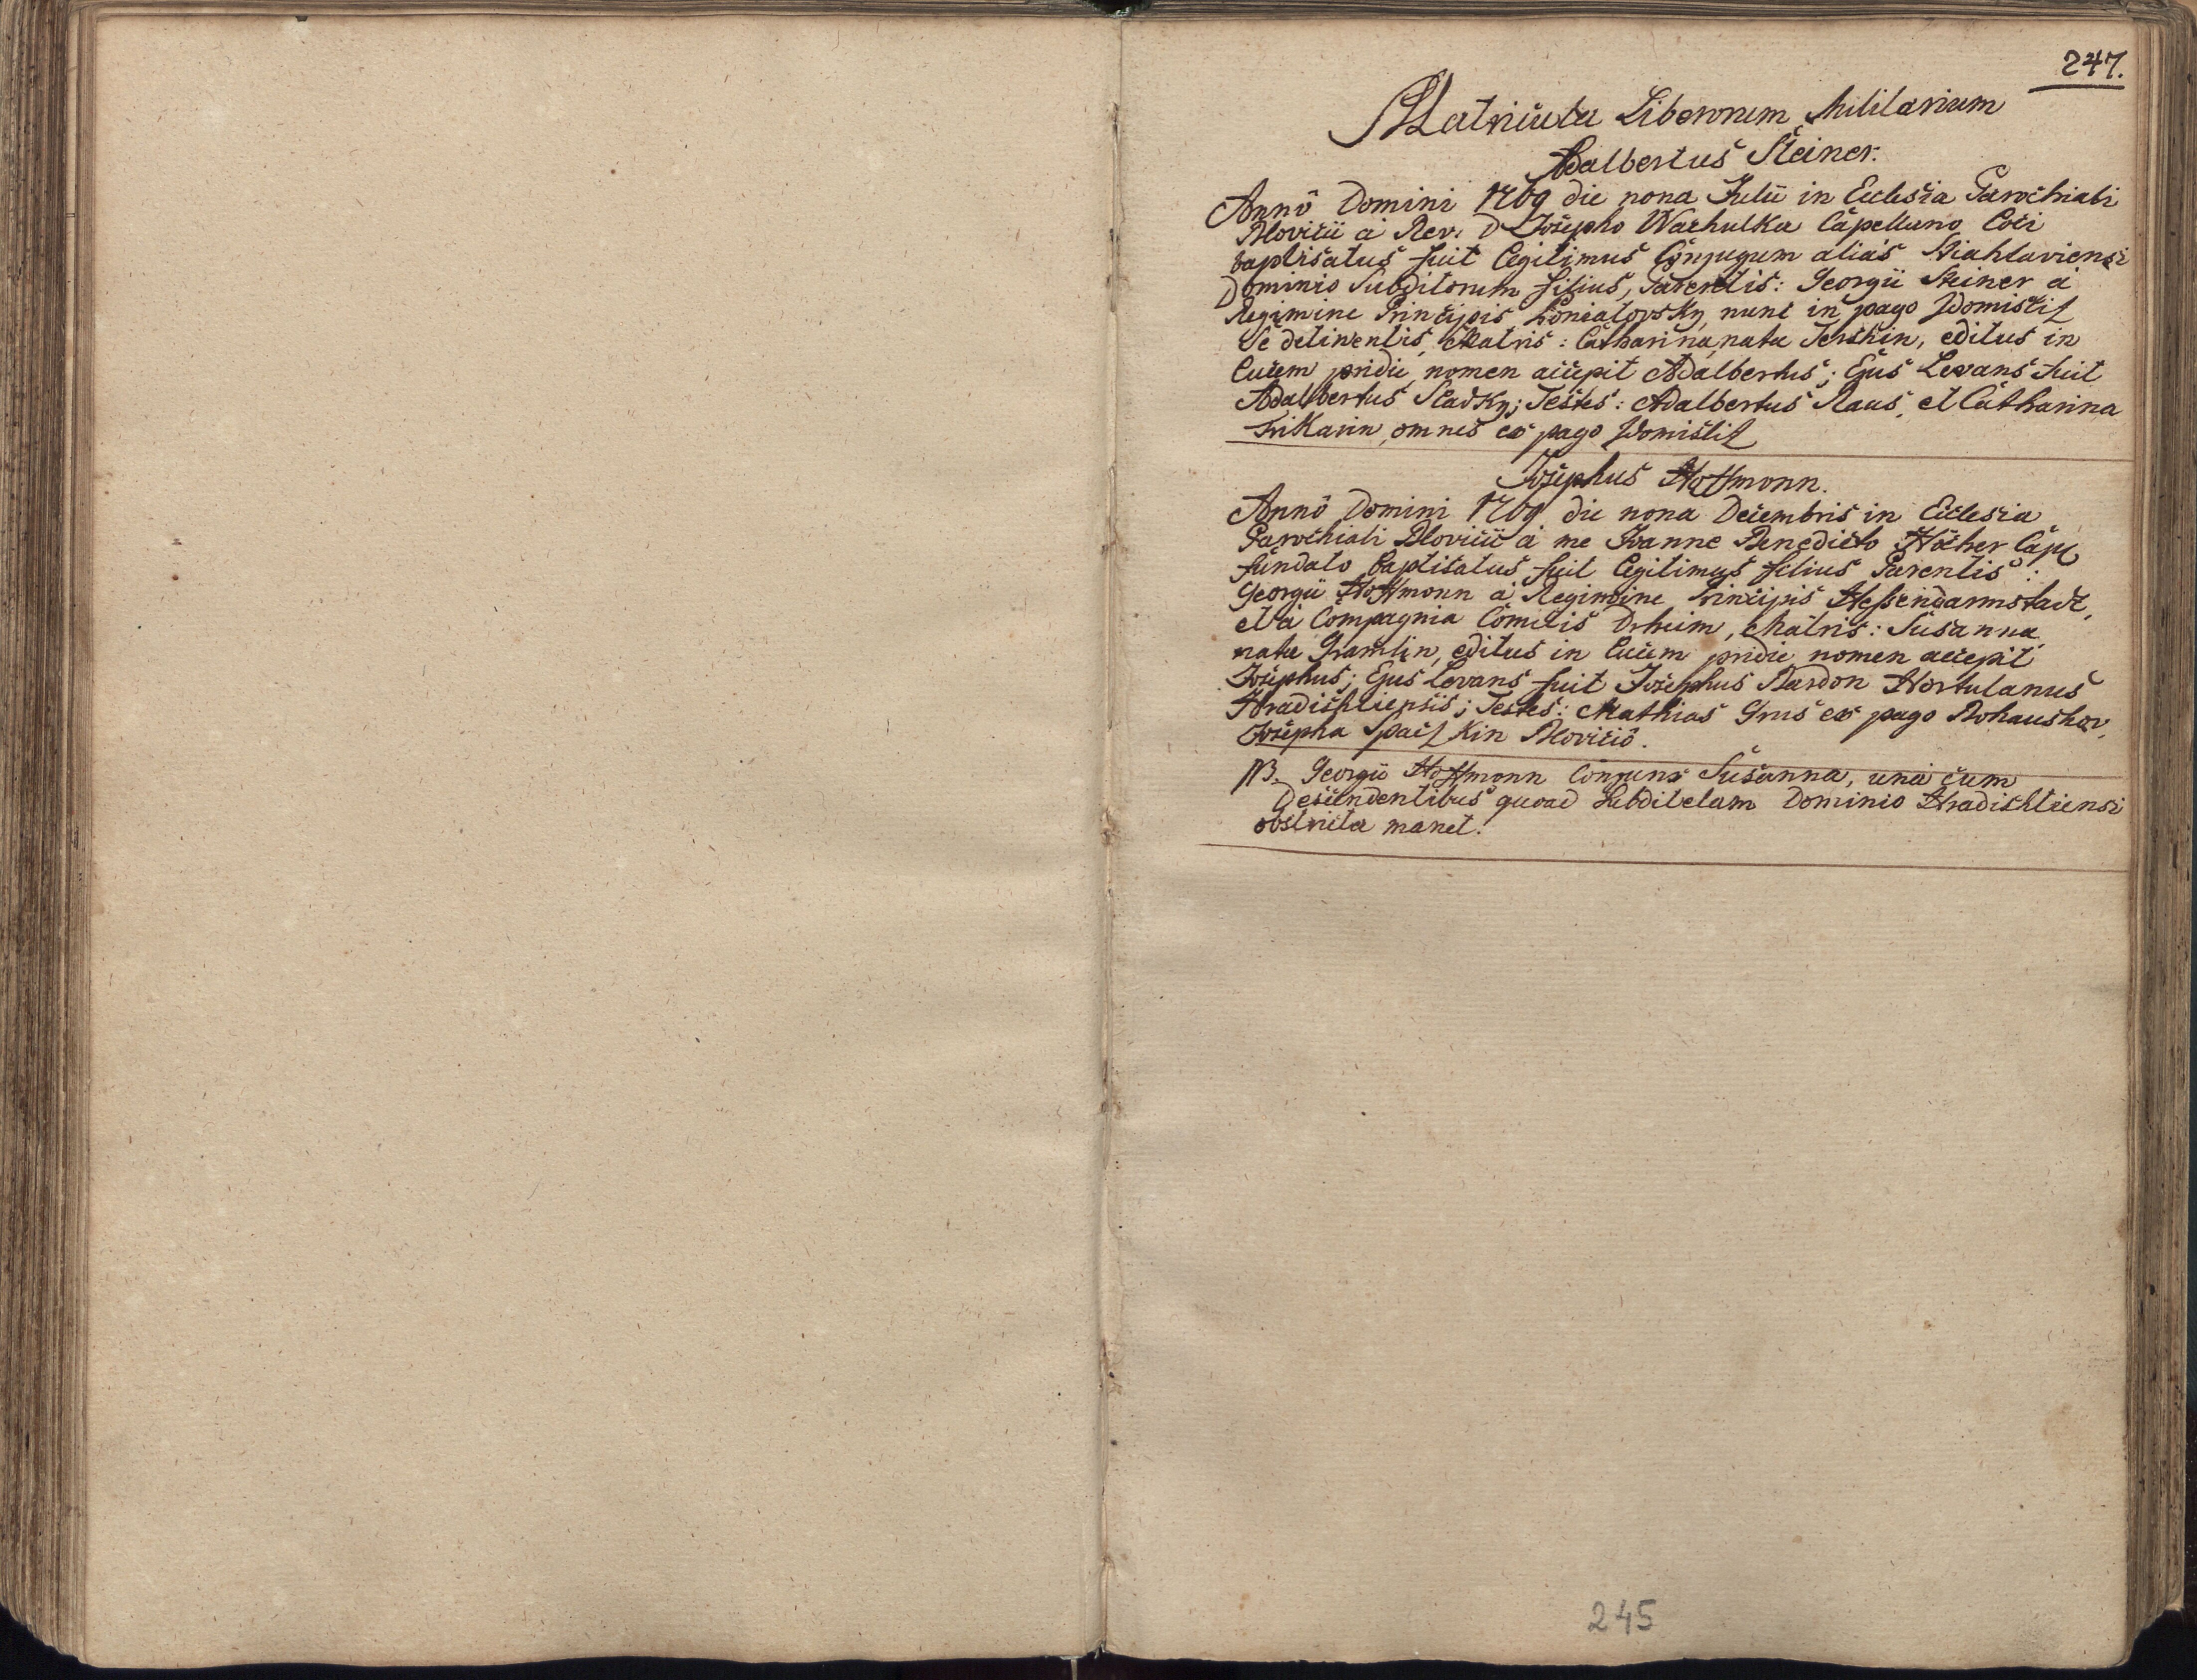 247.
Matricula Liberorum Militarium
Adalbertus Steiner.
Annô Domini 1769 die nona Julii in Ecclesia Parochiali
Blovicii à Rev: D Josepho Wachulka Capellano Loci
baptisatus fuit legitimus Conjugum aliàs Stiahlaviensi
Dominio Subditorum filius, Parentis: Georgii Steiner à
Regimine Principis Poniatovsky, nunc in pago Zdomislitz
se detinentis, Matris: Catharina, nata, editus in
lucem pridie, nomen accepit Adalbertus; Ejus Levans fuit
Adalbertus Sladky; Testes: Adalbertus Raus, et Catharina
omnes ex pago Zdomislitz
Josephus Hoffmonn.
Annô Domini 1769 die nona Decembris in Ecclesia
Parochiali Blovicii à me Joanne Benedicto Höcher Capl
fundato baptisatus fuit legitimus filius Parentis:
Georgii Hoffmonn à Regimine Principis Hessendarmstadt,
et à Compagnia Comitis Drheim, Matris: Susanna
nata Gramlin, editus in lucem pridie nomen accepit
Josephus; Ejus Levans fuit Josephus Bardon Hortulanus
Hradishtiensis; Testes: Mathias Grus ex pago Bohaushov,
Josepha Spatzkin Blovicio.
NB. Georgii Hoffmonn Conjunx Susanna, unà cum
Descendentibus quoad Subditelam Dominio Hradishtiensi
obstricta manet.
245